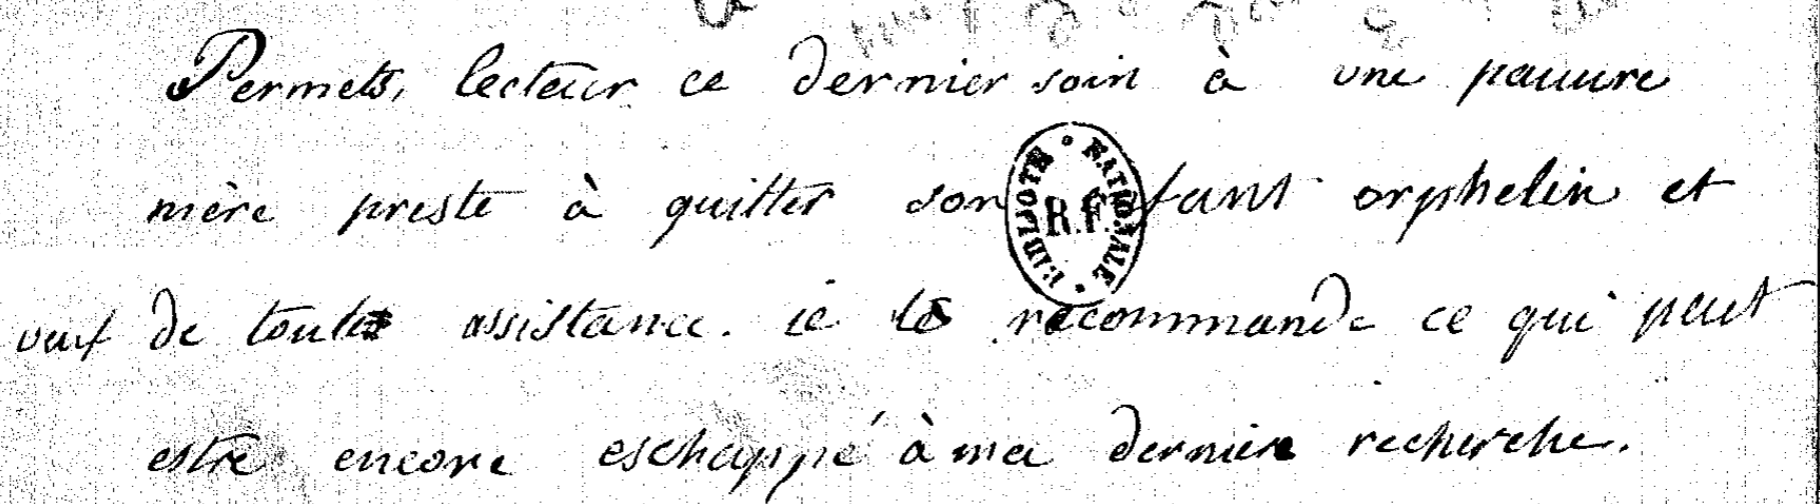 Permets, lecteur ce dernier soin à une pauure
mère preste à quitter son enfant orphelin et
veuf de toute assistance. ie le recommande ce qui peut
estre encore eschappé à ma derniere recherche.
BIBLIOTE NATIONALE
R.F.